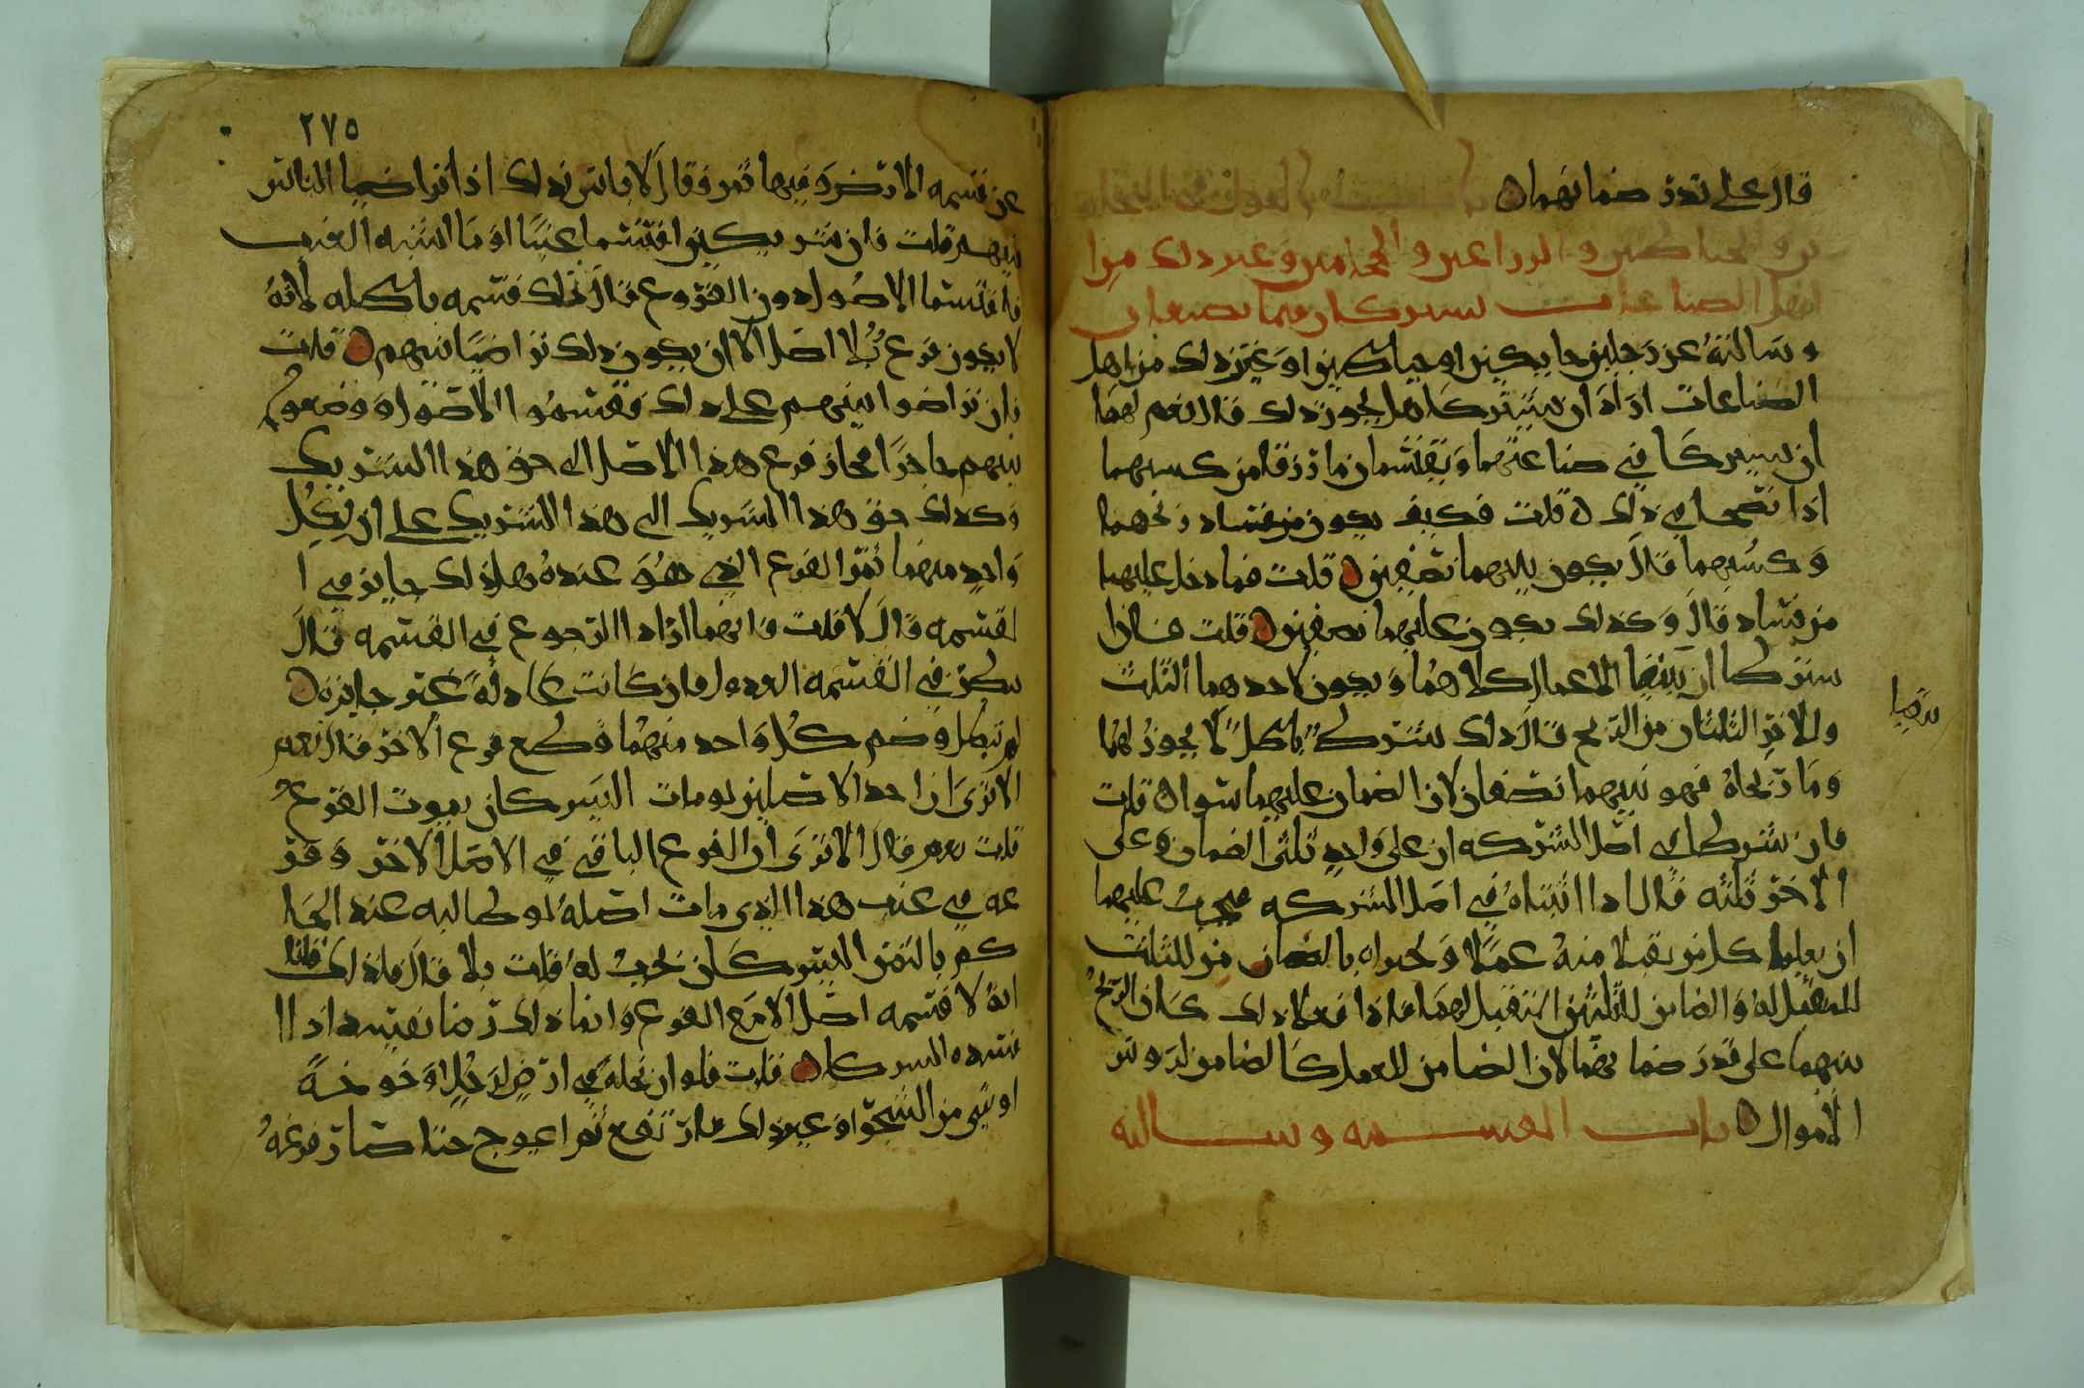 قال على قدر ضمانهما
والخياطين والزراعين والحجامين وغير ذلك من
اهل الصناعات يشتركان فيما يصنعان
وسالته عن رجلين حايكين او خياطين او غير ذلك من اهل
الصناعات ارادا ان يشتركا هل يجوز ذلك قال نعم لهما
ان يشتركا في صناعتهما ويقتسمان ما رزقا من كسبهما
اذا نصحا في ذلك قلت فكيف يكون من فساد ربحهما
وكسبهما قال يكون بينهما نصفين قلت فما دخل عليهما
من فساد قال وكذلك يكون عليهما نصفين قلت فان
اشتركا ان يتقبلا الاعمال كلاهما ويكون لاحدهما الثلث
وللاخر الثلثان من الربح قال ذلك شرك باطل لا يجوز لهما
وما ربحاه فهو بينهما نصفان لان الضمان عليهما سوا قلت
فان شرطا في اصل الشركه ان على واحد ثلثي الضمان وعلى
الاخر ثلثه قال اذا اثبتاه في اصل الشركه فيجب عليهما
ان يعلما كل من يقبلا منه عملا ويخبراه بالضامن من للثلث
المتقبل له والضامن للثلثين المتقبل لهما فاذا فعلا ذلك كان الربح
بينهما على قدر ضمانهما لان الضامن للعمل كالضامن لرووس
الاموال باب القسمه وسالته
٢٧٥
عن قسمه الارض وفيها ثمر فقال لا باس بذلك اذا تراضيا الناس
بينهم قلت فان شريكين اقتسما عنبا او ما اشبه العنب
فاقتسما الاصول دون الفروع قال تلك قسمه باطله لانه
لا يكون فرع بلا اصل الا ان يكون ذلك تراضيا بينهم قلت
فان تراضوا بينهم على ذلك فقسموا الاصول ووضعوا
بينهم حاجزا فجاز فرع هذا الاصل الى حق هذا الشريك
وكذلك حق هذا الشريك الى هذا الشريك على ان لكل
واحد منهما ثمر الفرع الذي هو عنده هل ذلك جايز في ا
لقسمه قال لا قلت فانهما ارادا الرجوع في القسمه قال
ينظر في القسمه العدول فان كانت عادله غير جايزه
لم تبطل وضم كل واحد منهما وقطع فرع الاخر قال نعم
الا ترى ان احد الاصلين لو مات اليس كان يموت الفرع
قلت نعم قال الا ترى ان الفرع الباقي في الاصل الاخر وفر
عه في عنب هذا الذي مات اصله لو طالبه عند الحا
كم بالثمر اليس كان يجب له قلت بلى قال فلذلك قلنا
انه لا قسمه اصل الا مع الفرع وانما ذلك رضا نفسه اذا
فسده الشريكان قلت فلو ان نخله في ارض لرجل او خوخه
او شي من الشجر او غير ذلك فارتفع ثم اعوج حتا صار فرعه